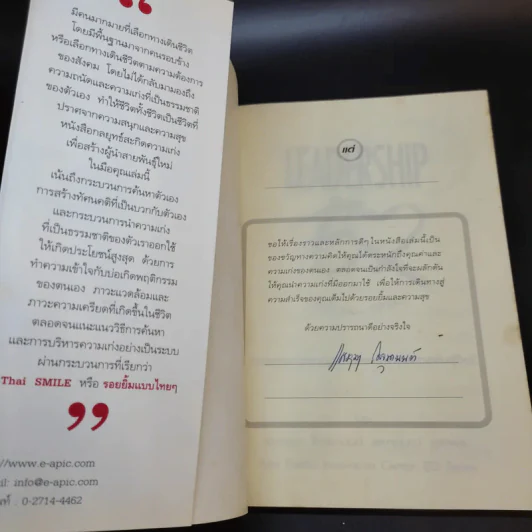 มีคนมากมายที่เลือกทางเดินชีวิต
โดยมีพื้นฐานมาจากคนรอบข้าง
หรือเลือกทางเดินชีวิตตามความต้องการ
ของสังคม โดยไม่ได้กลับมามองถึง
ความถนัดและความเก่งที่เป็นธรรมชาติ
ของตัวเอง ทำให้ชีวิตทั้งชีวิตเป็นชีวิตที่
ปราศจากความสนุกและความสุข
หนังสือกลยุทธ์สะกิดความเก่ง
เพื่อสร้างผู้นำสายพันธุ์ใหม่
ในมือคุณเล่มนี้
เน้นถึงกระบวนการค้นหาตัวเอง
การสร้างทัศนคติที่เป็นบวกกับตัวเอง
และกระบวนการนำความเก่ง
ที่เป็นธรรมชาติของตัวเราออกใช้
ให้เกิดประโยชน์สูงสุด ด้วยการ
ทำความเข้าใจกับบ่อเกิดพฤติกรรม
ของตนเอง ภาวะแวดล้อมและ
ภาวะความเครียดที่เกิดขึ้นในชีวิต
ตลอดจนแนะแนววิธีการค้นหา
และการบริหารความเก่งอย่างเป็นระบบ
ผ่านกระบวนการที่เรียกว่า
Thai SMILE หรือ รอยยิ้มแบบไทยๆ
//www.e-apic.com
il: info@e-apic.com
. 0-2714-4462
แด่
ขอให้เรื่องราวและหลักการดีๆ ในหนังสือเล่มนี้เป็น
ของขวัญทางความคิดให้คุณได้ตระหนักถึงคุณค่าและ
ความเก่งของตนเอง ตลอดจนเป็นกำลังใจที่จะผลักดัน
ให้คุณนำความเก่งที่มีออกมาใช้ เพื่อให้การเดินทางสู่
ความสำเร็จของคุณเต็มไปด้วยรอยยิ้มและความสุข
ด้วยความปรารถนาดีอย่างจริงใจ